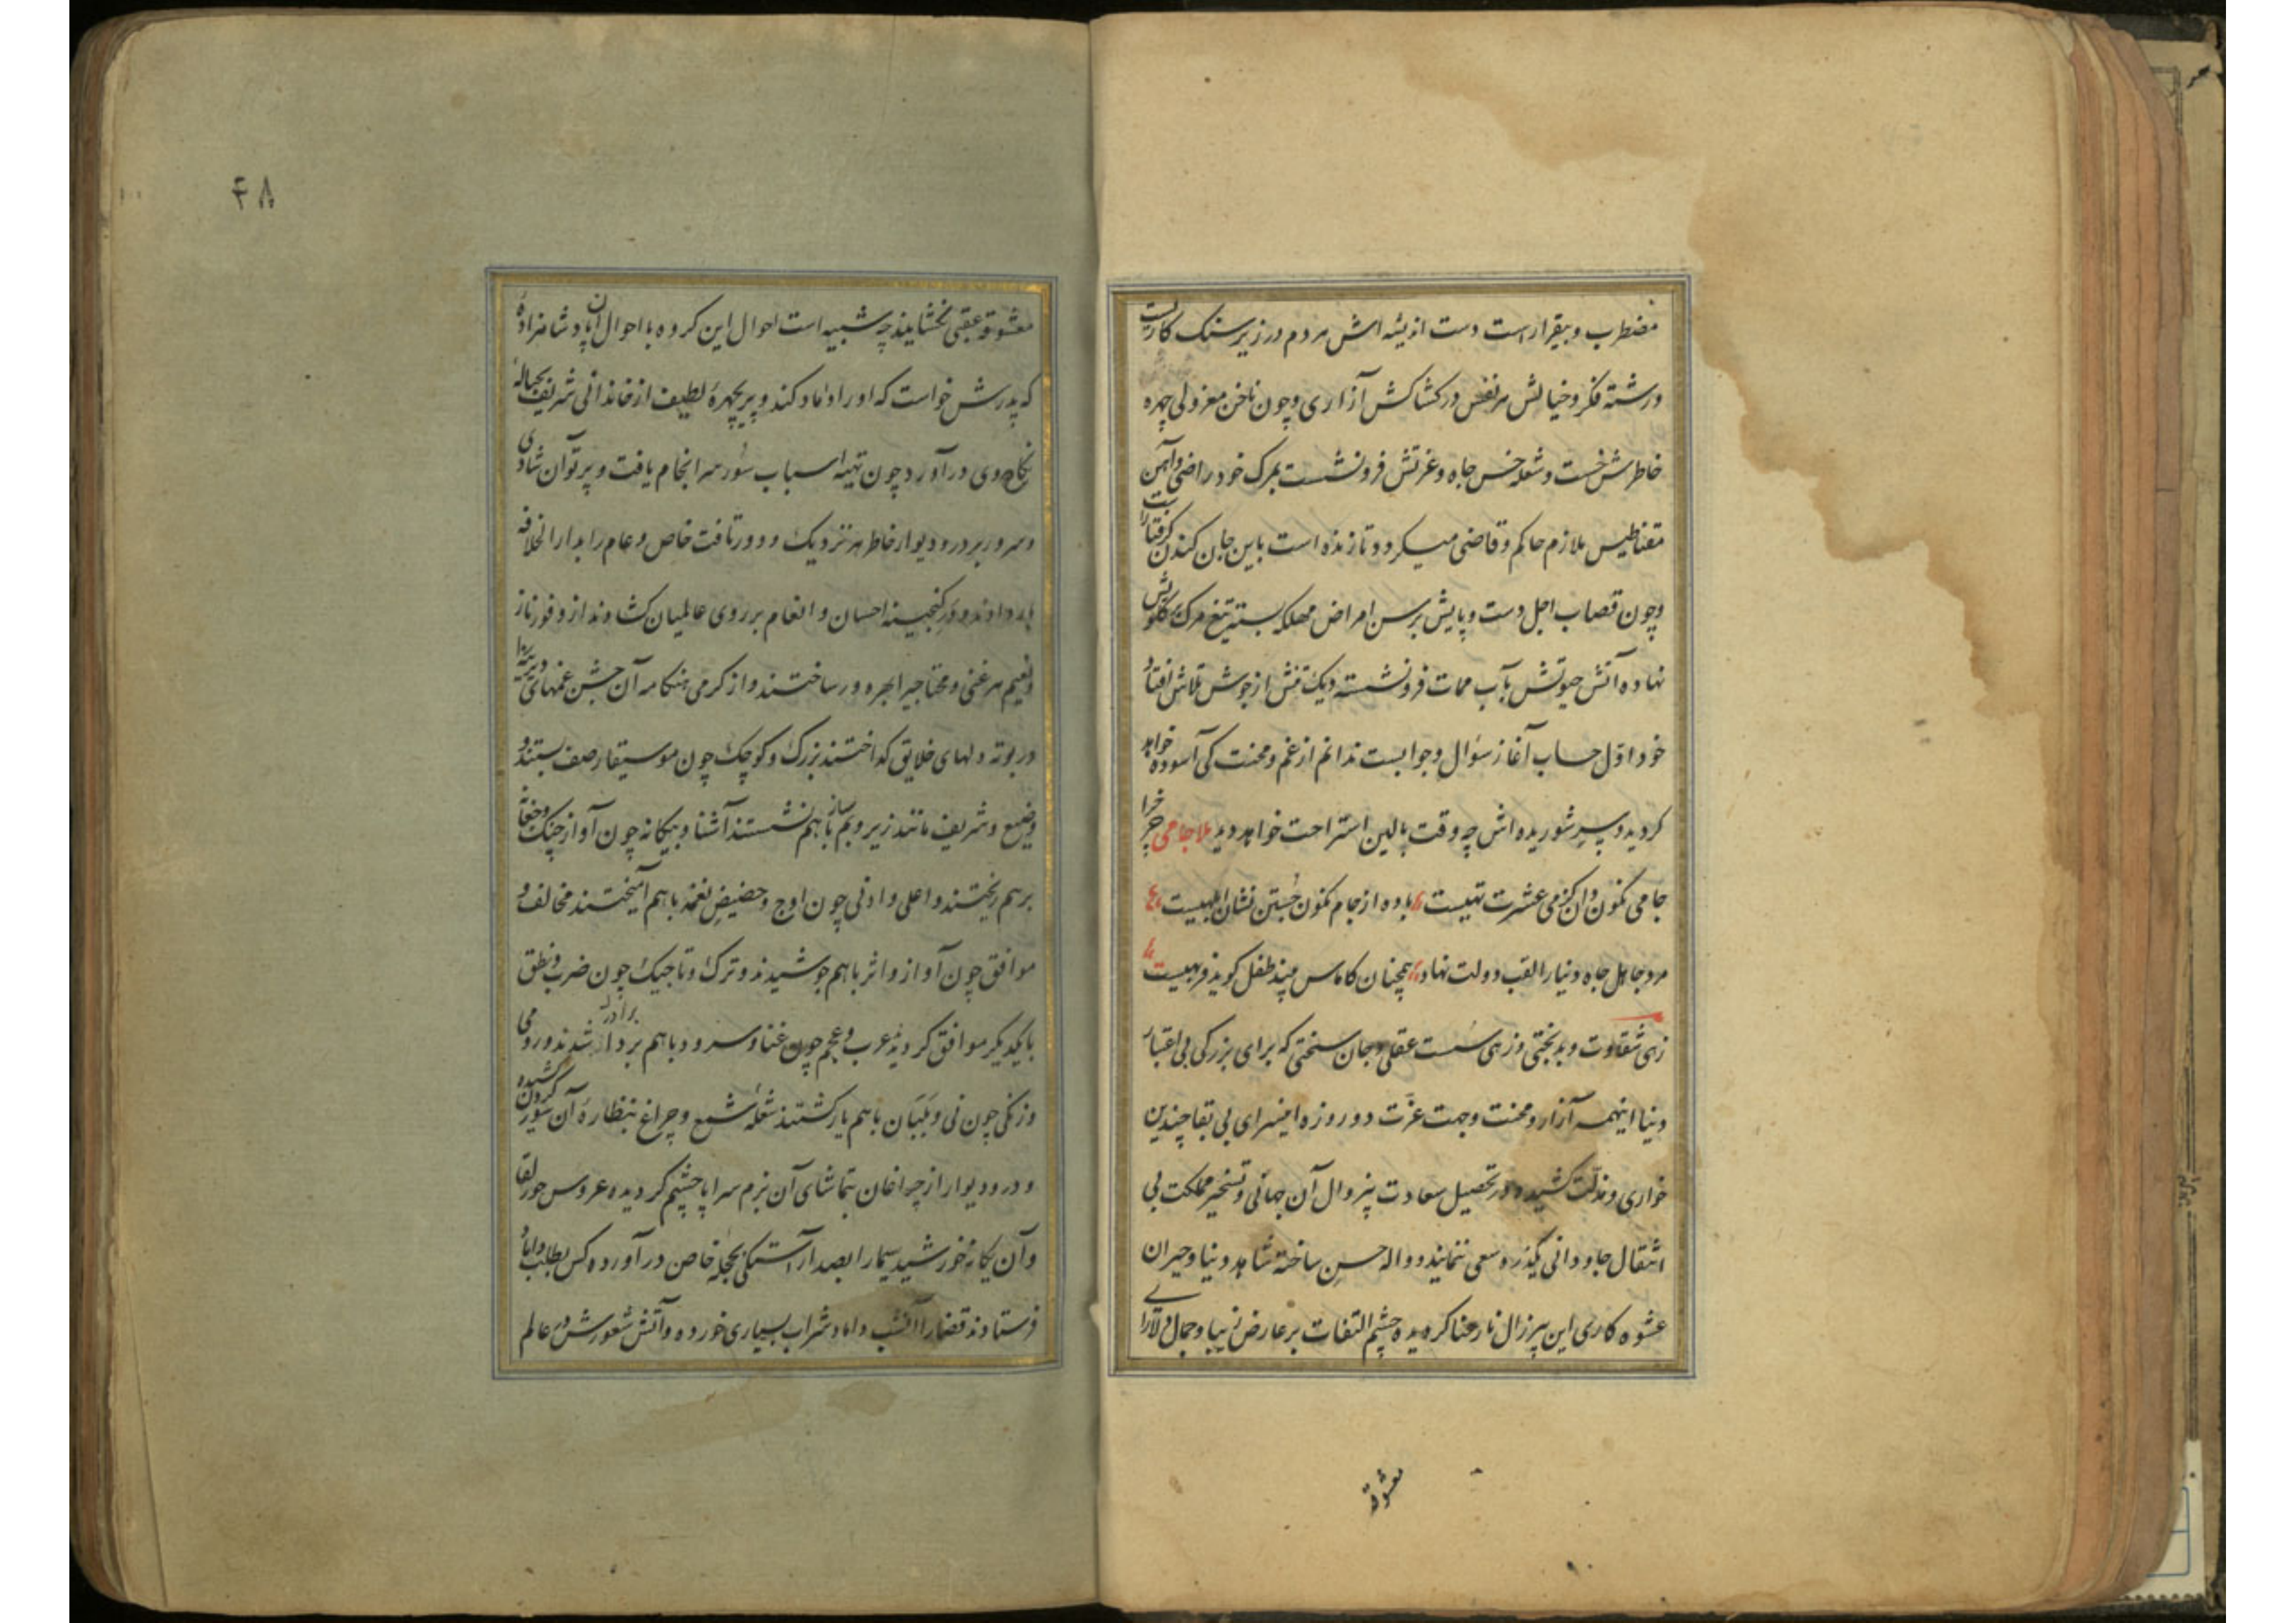 مضطرب و بیقرار است دست اندیشه اش هر دم در زیر سنک کاریست
و رشته فکر و خیالش هر نفس در کشاکش آزاری و چون ناخن معزولی چهره
خاطرش خست و شعله خس جاه و عزتش فرو نشست بمرک خود راضی و آهن
مقناطیس ملازم حاکم و قاضی میکردد تا زنده است باین جان کندن گرفتار است
و چون قصاب اجل دست و پایش برسن امراض مهلکه بسته تیغ مرک بر گلویش
نهاده آتش حیوتش بآب ممات فرو نشسته دیک تنش از جوش تلاش افتاد
خود اول حساب آغاز سؤال و جوابست ندانم از غم و محنت کی آسوده خواهد
کردید و سر شوریده اش چه وقت بالین استراحت خواهد دید ملا جامی چرخ را
جامی نکون دان کز می عشرت تهیست باده از جام نکون جستن نشان ابلهیست
مرد جاهل جاه دنیا را لقب دولت نهاد همچنان کاماس بیند طفل کوید فربهیست
زهی شقاوت و بدبختی و زهی سست عقلی و جان سختی که برای بزرکی بی اعتبار
دنیا اینهمه آزار و محنت و جهت عزت دو روزه اینسرای بی بقا چندین
خواری و مذلت کشیده در تحصیل سعادت بیزوال آن جهانی و تسخیر مملکت بی
انتقال جاودانی یکذره سعی ننمایند و واله حسن ساخته شاهد دنیا و حیران
عشوه کاری این پیر زال نارعنا کردیده چشم التفات بر عارض زیبا و جمال دلارای
معشوقه
۴۸
معشوقه عقبی نکشایند چه شبیه است احوال این کروه با احوال آن پادشاهزاده
که پدرش خواست که او را داماد کند و پریچهره لطیف از خاندانی شریف بحباله
نکاح وی در آورد چون تهیه اسباب سور سرانجام یافت و پرتو آن شادی
و سرور بر در و دیوار خاطر هر نزدیک و دور تافت خاص و عام را بدار الخلافه
بار دادند و در کنجینه احسان و انعام بر روی عالمیان کشادند از وفور ناز
و نعیم هر غنی و محتاجیرا بهره ور ساختند و از کرمی هنکامه آن جشن غمهای دیرینه را
در بوته دلهای خلایق کداختند بزرک و کوچک چون موسیقار صف بستند و
وضیع و شریف مانند زیر و بم ساز باهم نشستند آشنا و بیکانه چون آواز چنک و چغانه
برهم ریختند و اعلی و ادنی چون اوج و حضیض نغمه باهم آمیختند مخالف و
موافق چون آواز و اثر باهم جوشیدند و ترک و تاجیک چون ضرب و نطق
با یکدیکر موافق کردیدند عرب و عجم چون غنا و سرود باهم برادر شدند و رومی
و زنکی چون نی و بلبان باهم یار کشتند شعله شمع و چراغ بنظاره آن سور کردن کشیده
و در و دیوار از چراغان بتماشای آن بزم سراپا چشم کردیده عروس حور لقا
و آن یکانه خورشید سیما را بصد آراستکی بحجله خاص در آورده کس بطلب داماد
فرستادند قضا را آنشب داماد شراب بسیاری خورده و آتش شعورش در عالم